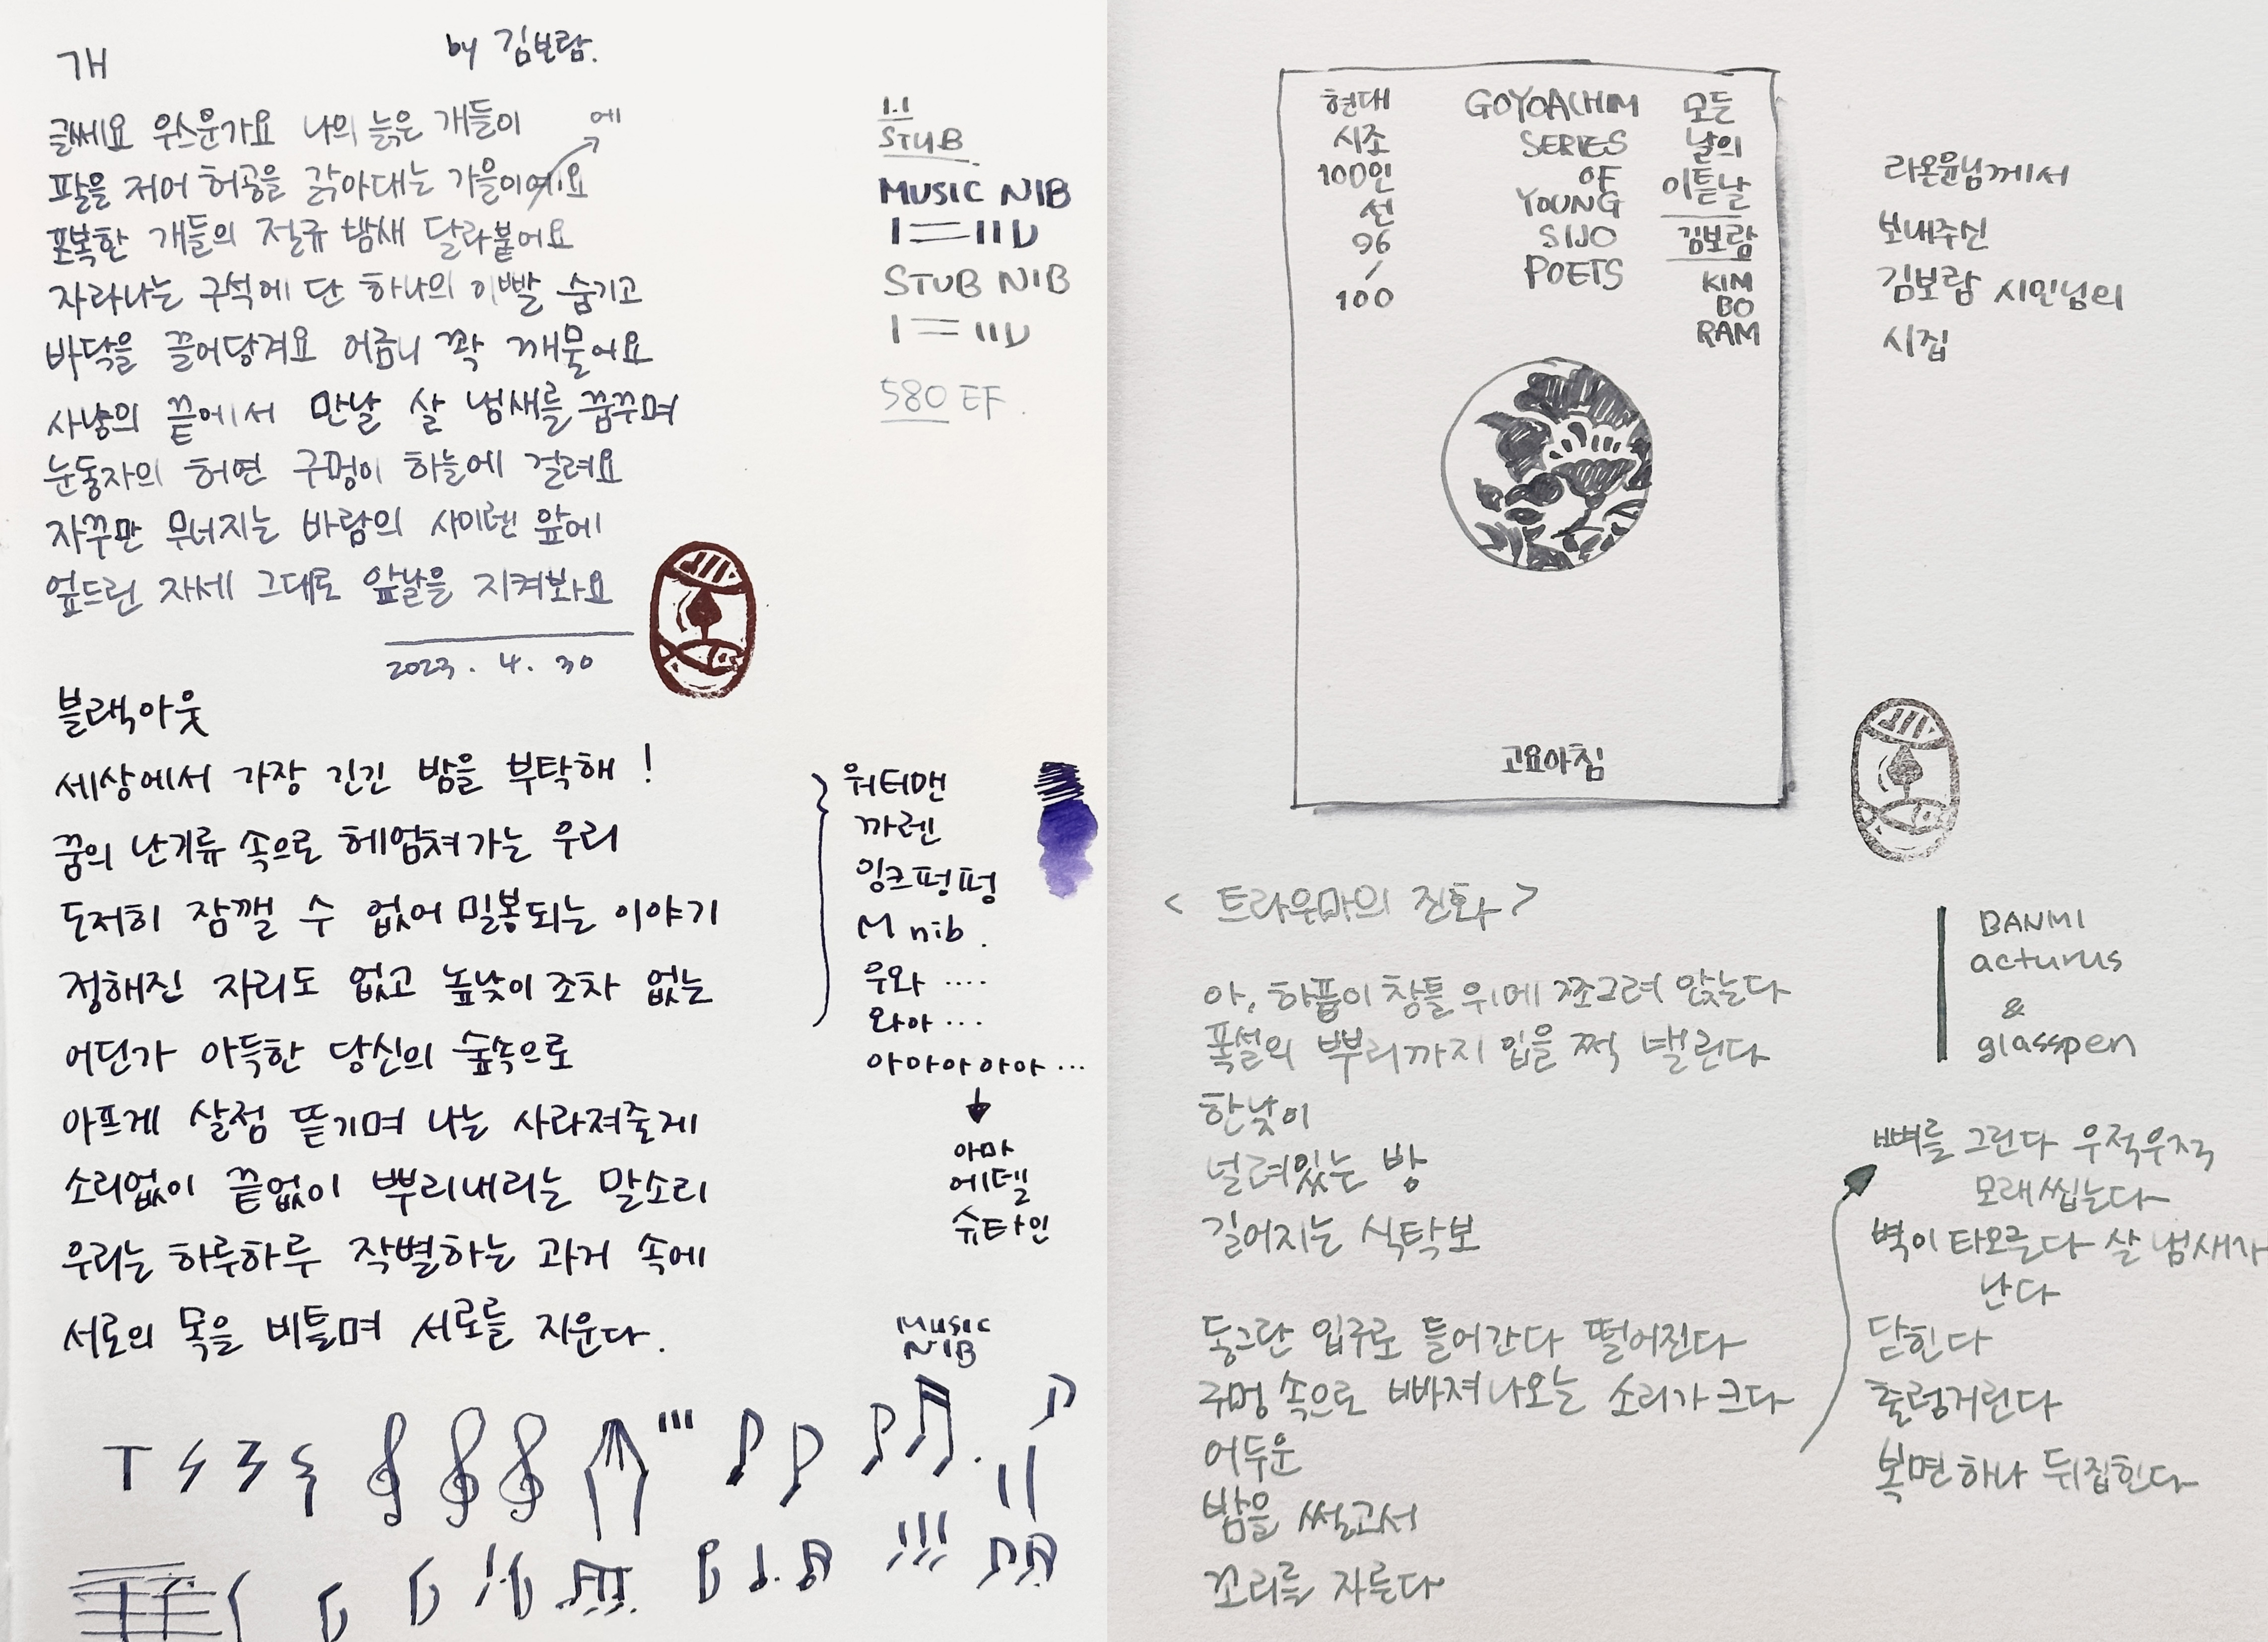 개
by 김보람.
글쎄요 우스운가요 나의 늙은 개들이
에
팔을 저어 허공을 긁아대는 가을이예요
포복한 개들의 전류 밤새 달라붙어요
자라나는 구석에 단 하나의 이빨 숨기고
바닥을 끌어당겨요 어금니 꽉 깨물어요
사냥의 끝에서 만날 살 냄새를 꿈꾸며
눈동자의 허연 구멍이 하늘에 걸려요
자꾸만 무너지는 바람의 사이렌 앞에
엎드린 자세 그대로 앞날을 지켜봐요
2023. 4. 30
1.1
STUB
MUSIC NIB
STUB NIB
580 EF.
블랙아웃
세상에서 가장 긴긴 밤을 부탁해!
꿈의 난기류 속으로 헤엄쳐가는 우리
도저히 잠깰 수 없어 밀봉되는 이야기
정해진 자리도 없고 높낮이조차 없는
어딘가 아득한 당신의 숲속으로
아프게 살점 뜯기며 나는 사라져줄게
소리없이 끝없이 뿌리내리는 말소리
우리는 하루하루 작별하는 과거 속에
서로의 목을 비틀며 서로를 지운다.
워터맨
까렌
잉크펑펑
M nib.
우와 ....
와아 ...
아아아아아아 ...
아마
에델
슈타인
MUSIC
NIB
현대
시조
100인
선
96
/
100
GOYOACHIM
SERIES
OF
YOUNG
SIJO
POETS
모든
날의
이튿날
김보람
KIM
BO
RAM
고요아침
라온윤님께서
보내주신
김보람 시인님의
시집
< 트라우마의 진화 >
아, 하품이 창틀 위에 쪼그려 앉는다
폭설의 뿌리까지 입을 쩍 벌린다
한낮이
널려있는 방
길어지는 식탁보
둥그런 입구로 들어간다 떨어진다
구멍 속으로 빠져나오는 소리가 크다
어두운
밤을 썰고서
꼬리를 자른다
BANMI
acturus
&
glasspen
뼈를 그린다 우적우적
모래씹는다
벽이 타오른다 살 냄새가
난다
닫힌다
출렁거린다
복면하나 뒤집힌다